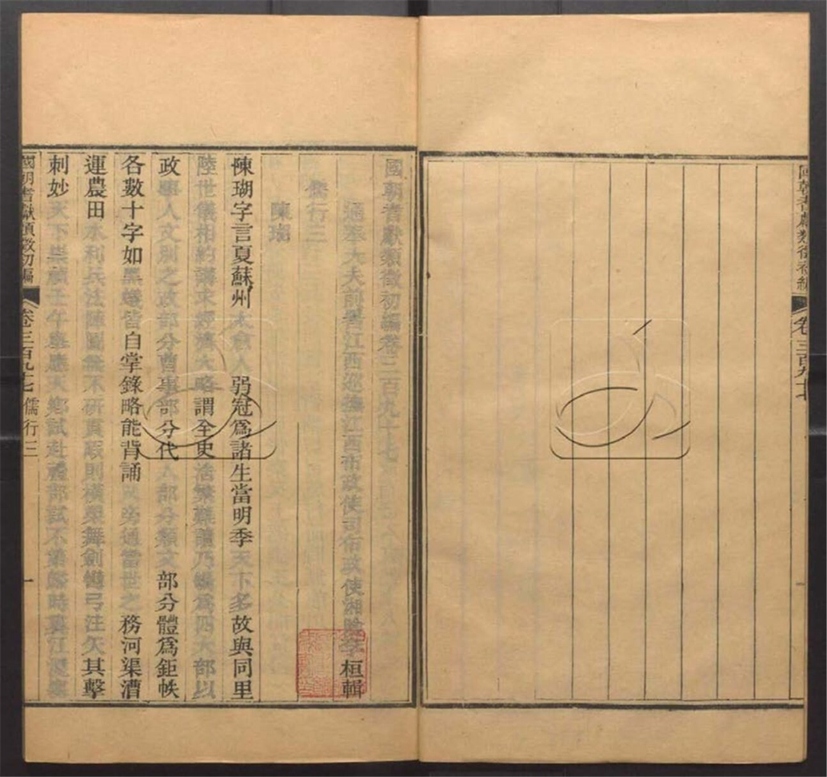 國朝耆獻類徵初編 卷三百九十七
國朝耆獻類徵初編卷三百九十七
通奉大夫前署江西巡撫江西布政使司布政使湘陰李桓輯
儒行三
陳瑚
陳瑚字言夏蘇州太倉人弱冠爲諸生當明季天下多故與同里
陸世儀相約講求經濟大略謂全史浩繁難讀乃編爲四大部以
政事人文別之政部分曹事部分代人部分類文部分體爲鉅帙
各數十字如黑蟻皆自掌錄略能背誦又旁通當世之務河渠漕
運農田水利兵法陣圖無不研貫暇則橫槊舞劍彎弓注矢其擊
刺妙天下崇禎壬午舉應天鄉試赴禮部試不第歸時婁江湮塞
國朝耆獻類徵初編 卷三百九十七 儒行三 一